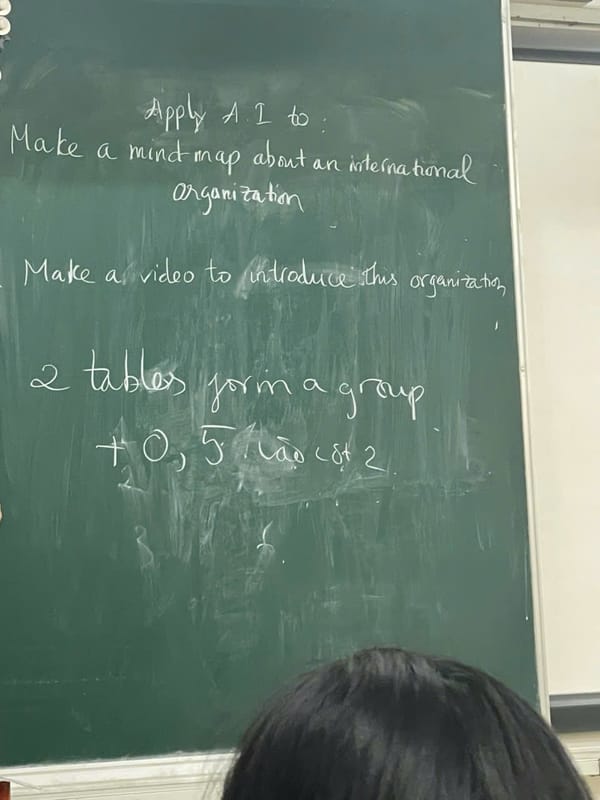 Apply A.I to:
Make a mindmap about an international
organization
Make a video to introduce this organization
2 tables form a group
+ 0,5 vào cột 2